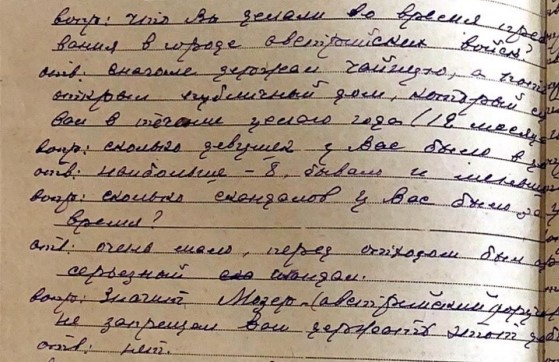 вопр: что Вы делали во время пребы
вания в городе австрийских войск?
отв: сначала держал чайную, а
открыл публичный дом, который
вал в течение целого года (12 месяце
вопр: сколько девушек у Вас было в
отв: наибольше - 8, бывало и меньше
вопр: сколько скандалов у Вас было за
время?
отв: очень мало, перед отходом был
серьезный скандал.
вопр: Значит Мозер (австрийский
не запрещал Вам держать этот
отв: нет.